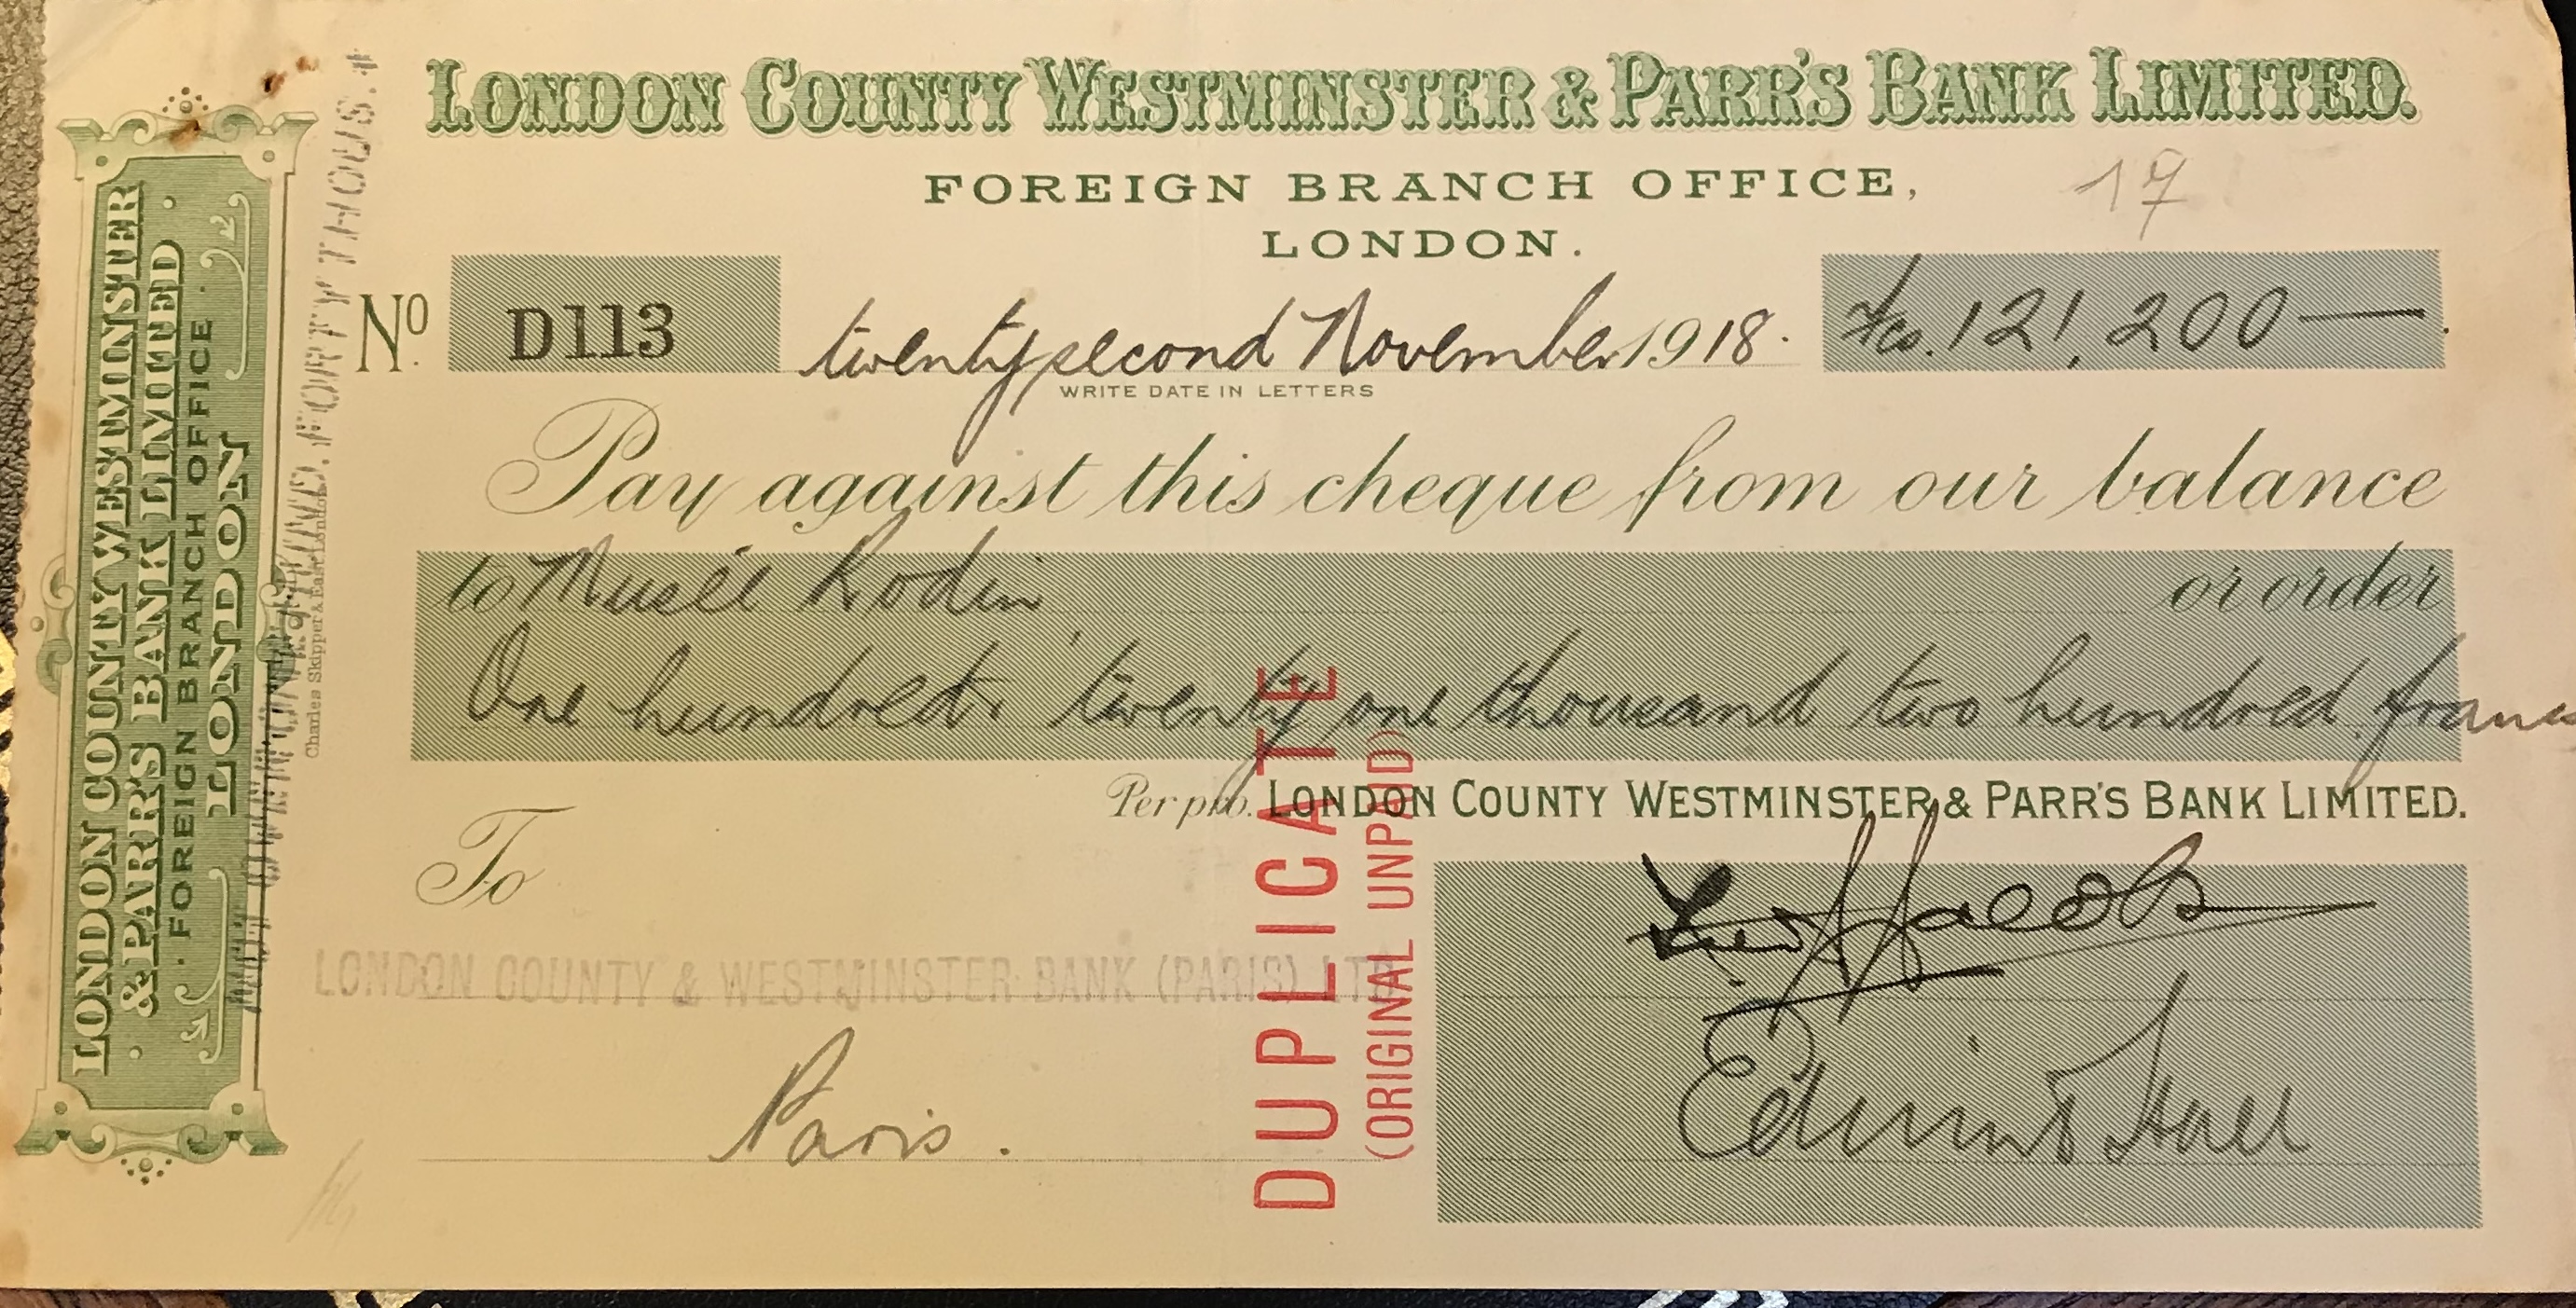 LONDON COUNTY WESTMINSTER & PARR'S BANK LIMITED.
FOREIGN BRANCH OFFICE,
LONDON.
17
No. D113
twenty second November 1918.
Fcs. 121,200—
WRITE DATE IN LETTERS
Pay against this cheque from our balance
to Musée Rodin or order
One hundred twenty one thousand two hundred francs
Per pro. LONDON COUNTY WESTMINSTER & PARR'S BANK LIMITED.
To
LONDON COUNTY & WESTMINSTER BANK (PARIS) LTD
Paris.
DUPLICATE
(ORIGINAL UNPAID)
Jacobs
Edwin Hall
LONDON COUNTY WESTMINSTER
& PARR'S BANK LIMITED
FOREIGN BRANCH OFFICE
LONDON
FORTY THOUS.
Charles Skipper & East, London